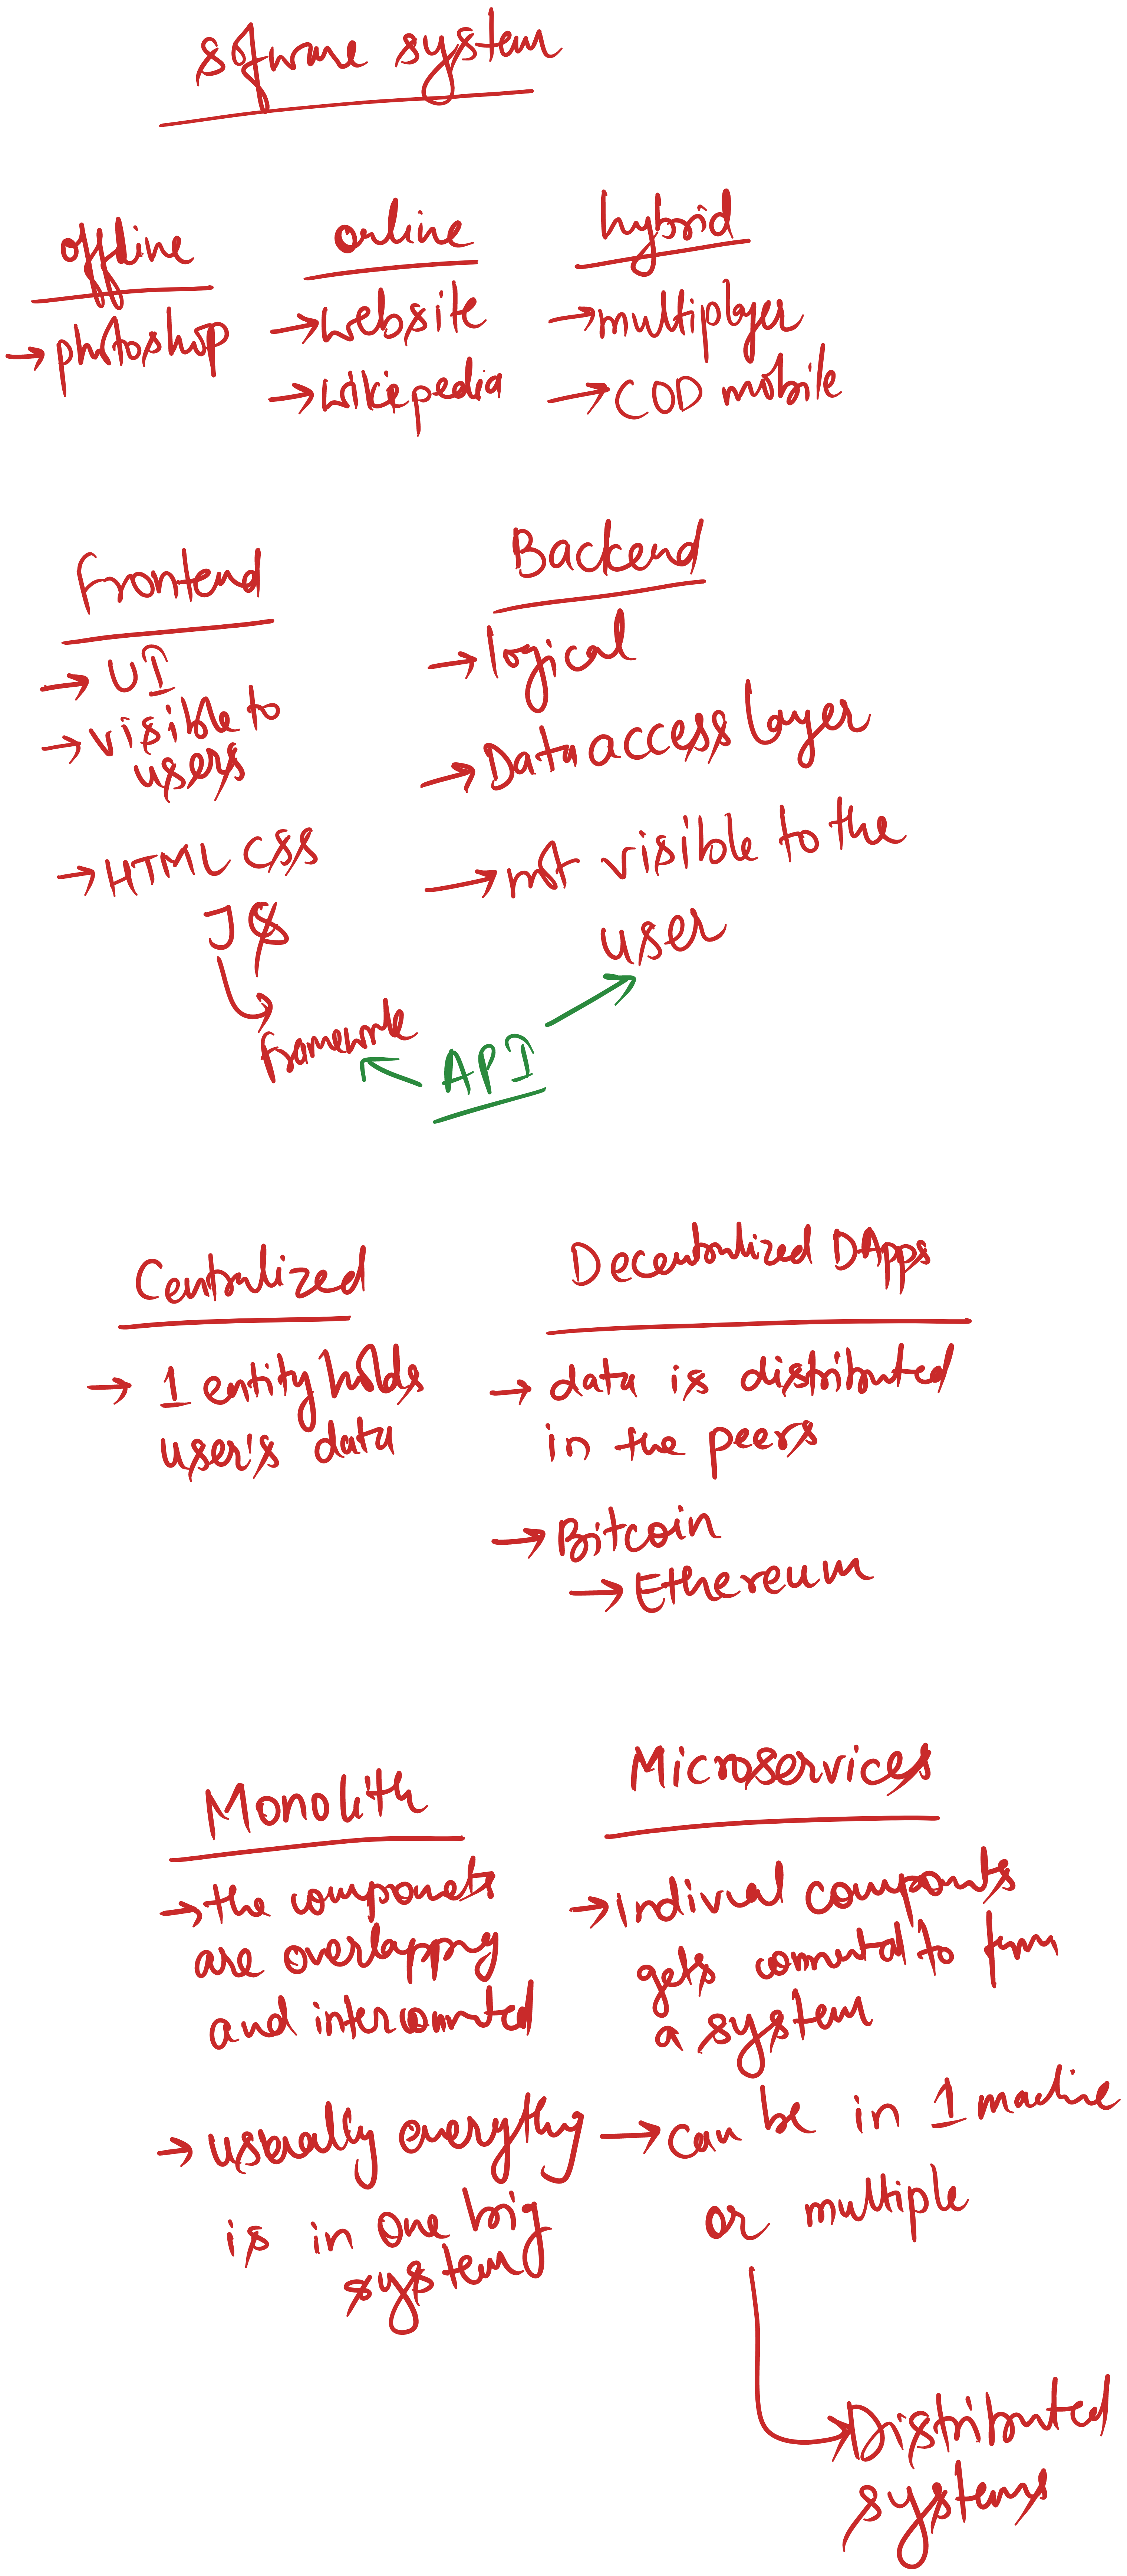 sftware system
offline
→ photoshop
online
→ website
→ wikipedia
hybrid
→ multiplayer
→ COD mobile
frontend
→ UI
→ visible to
users
→ HTML CSS
JS
framework
Backend
→ logical
→ Data access layer
→ not visible to the
user
API
Centralized
→ 1 entity holds
user's data
Decentralized DApps
→ data is distributed
in the peers
→ Bitcoin
→ Ethereum
Monolith
→ the components
are overlapping
and interconnected
→ usually everything
is in one big
system
Microservices
→ indivual components
gets connected to form
a system
→ can be in 1 machine
or multiple
→ Distributed
systems